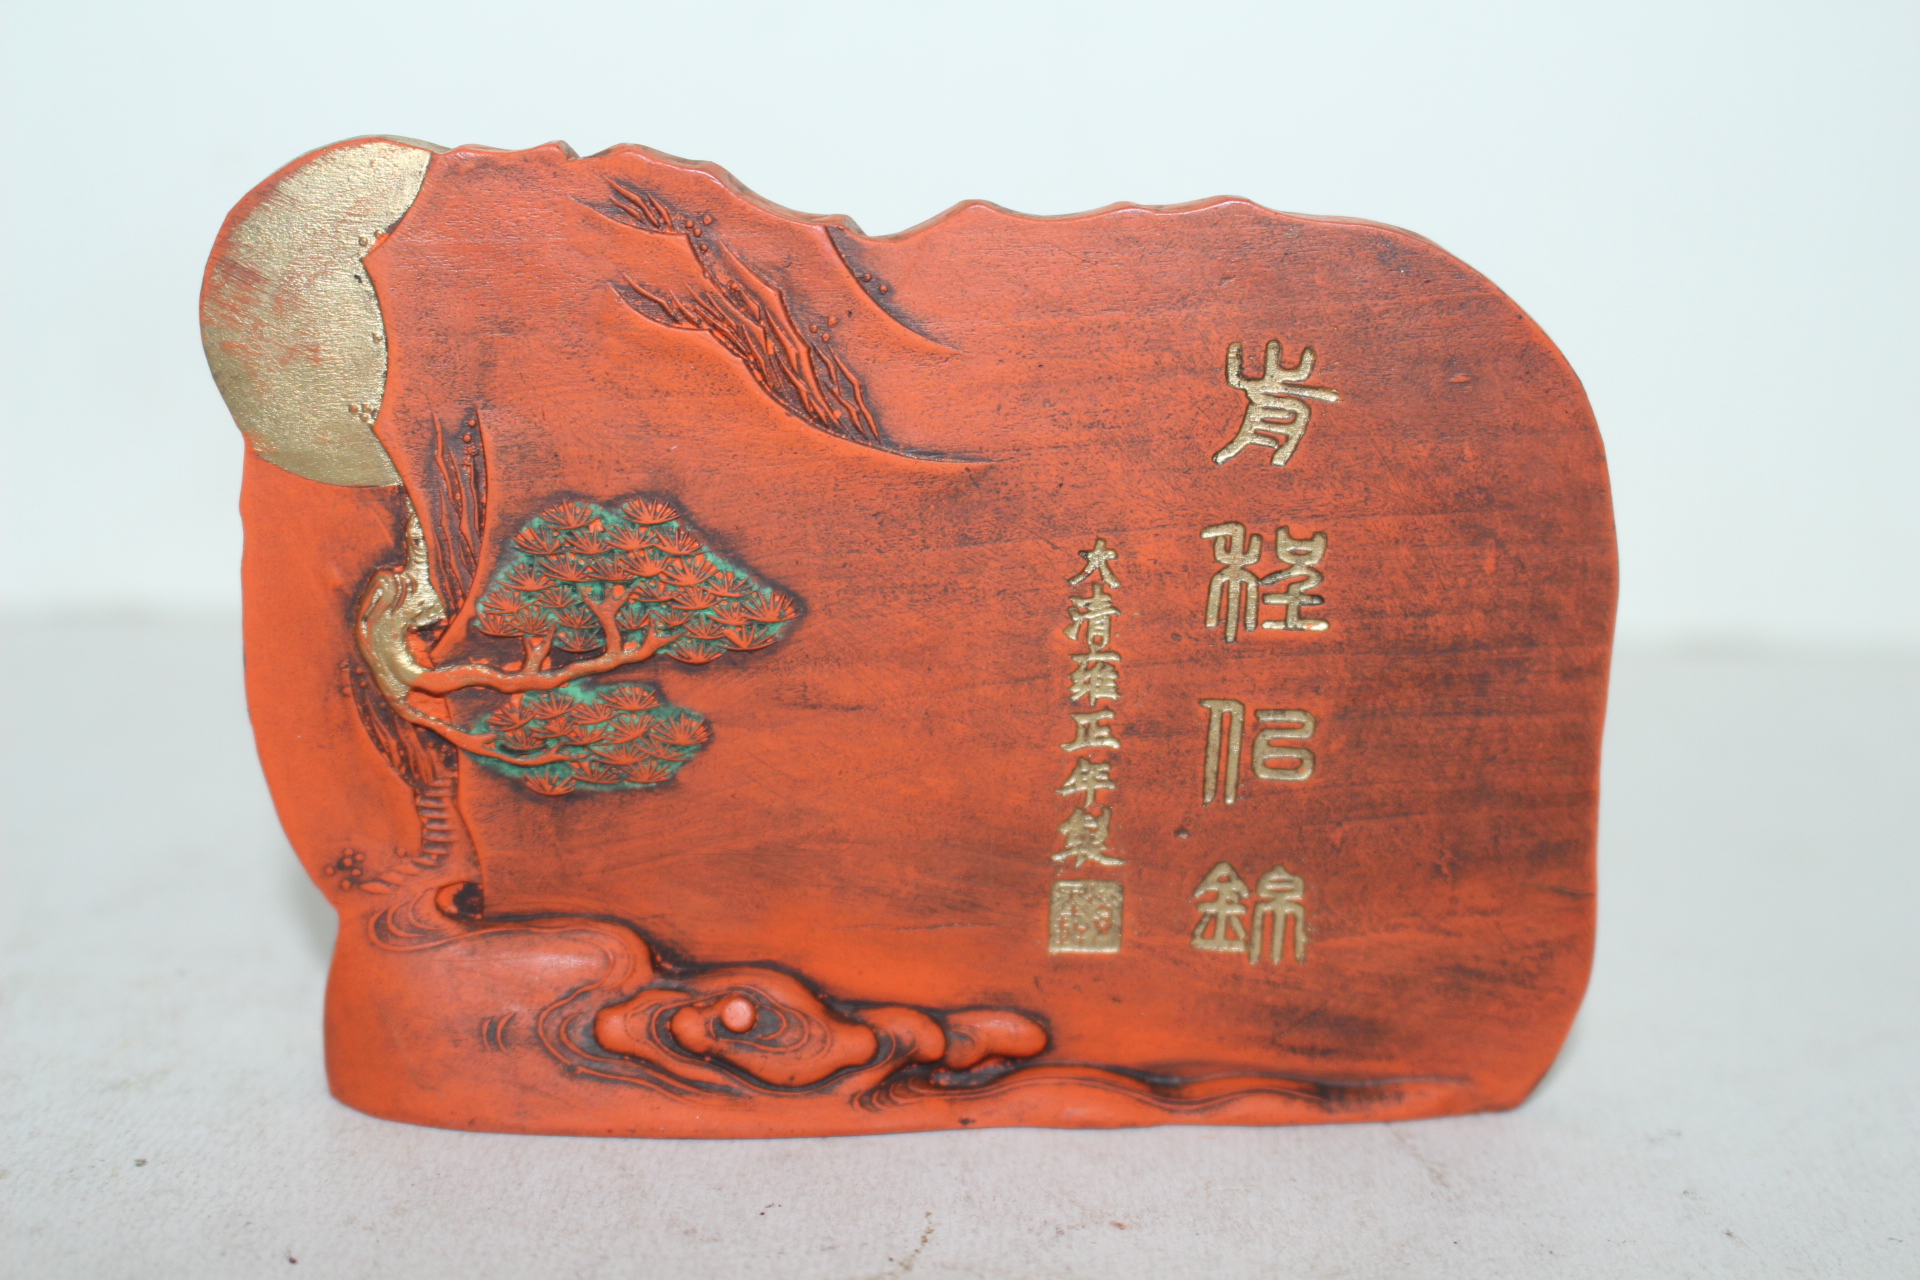 前程似錦
大清雍正年製